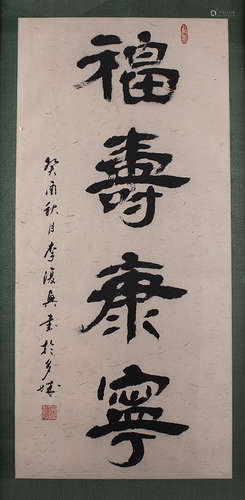 福壽康寧
癸酉秋月李復興書於多城